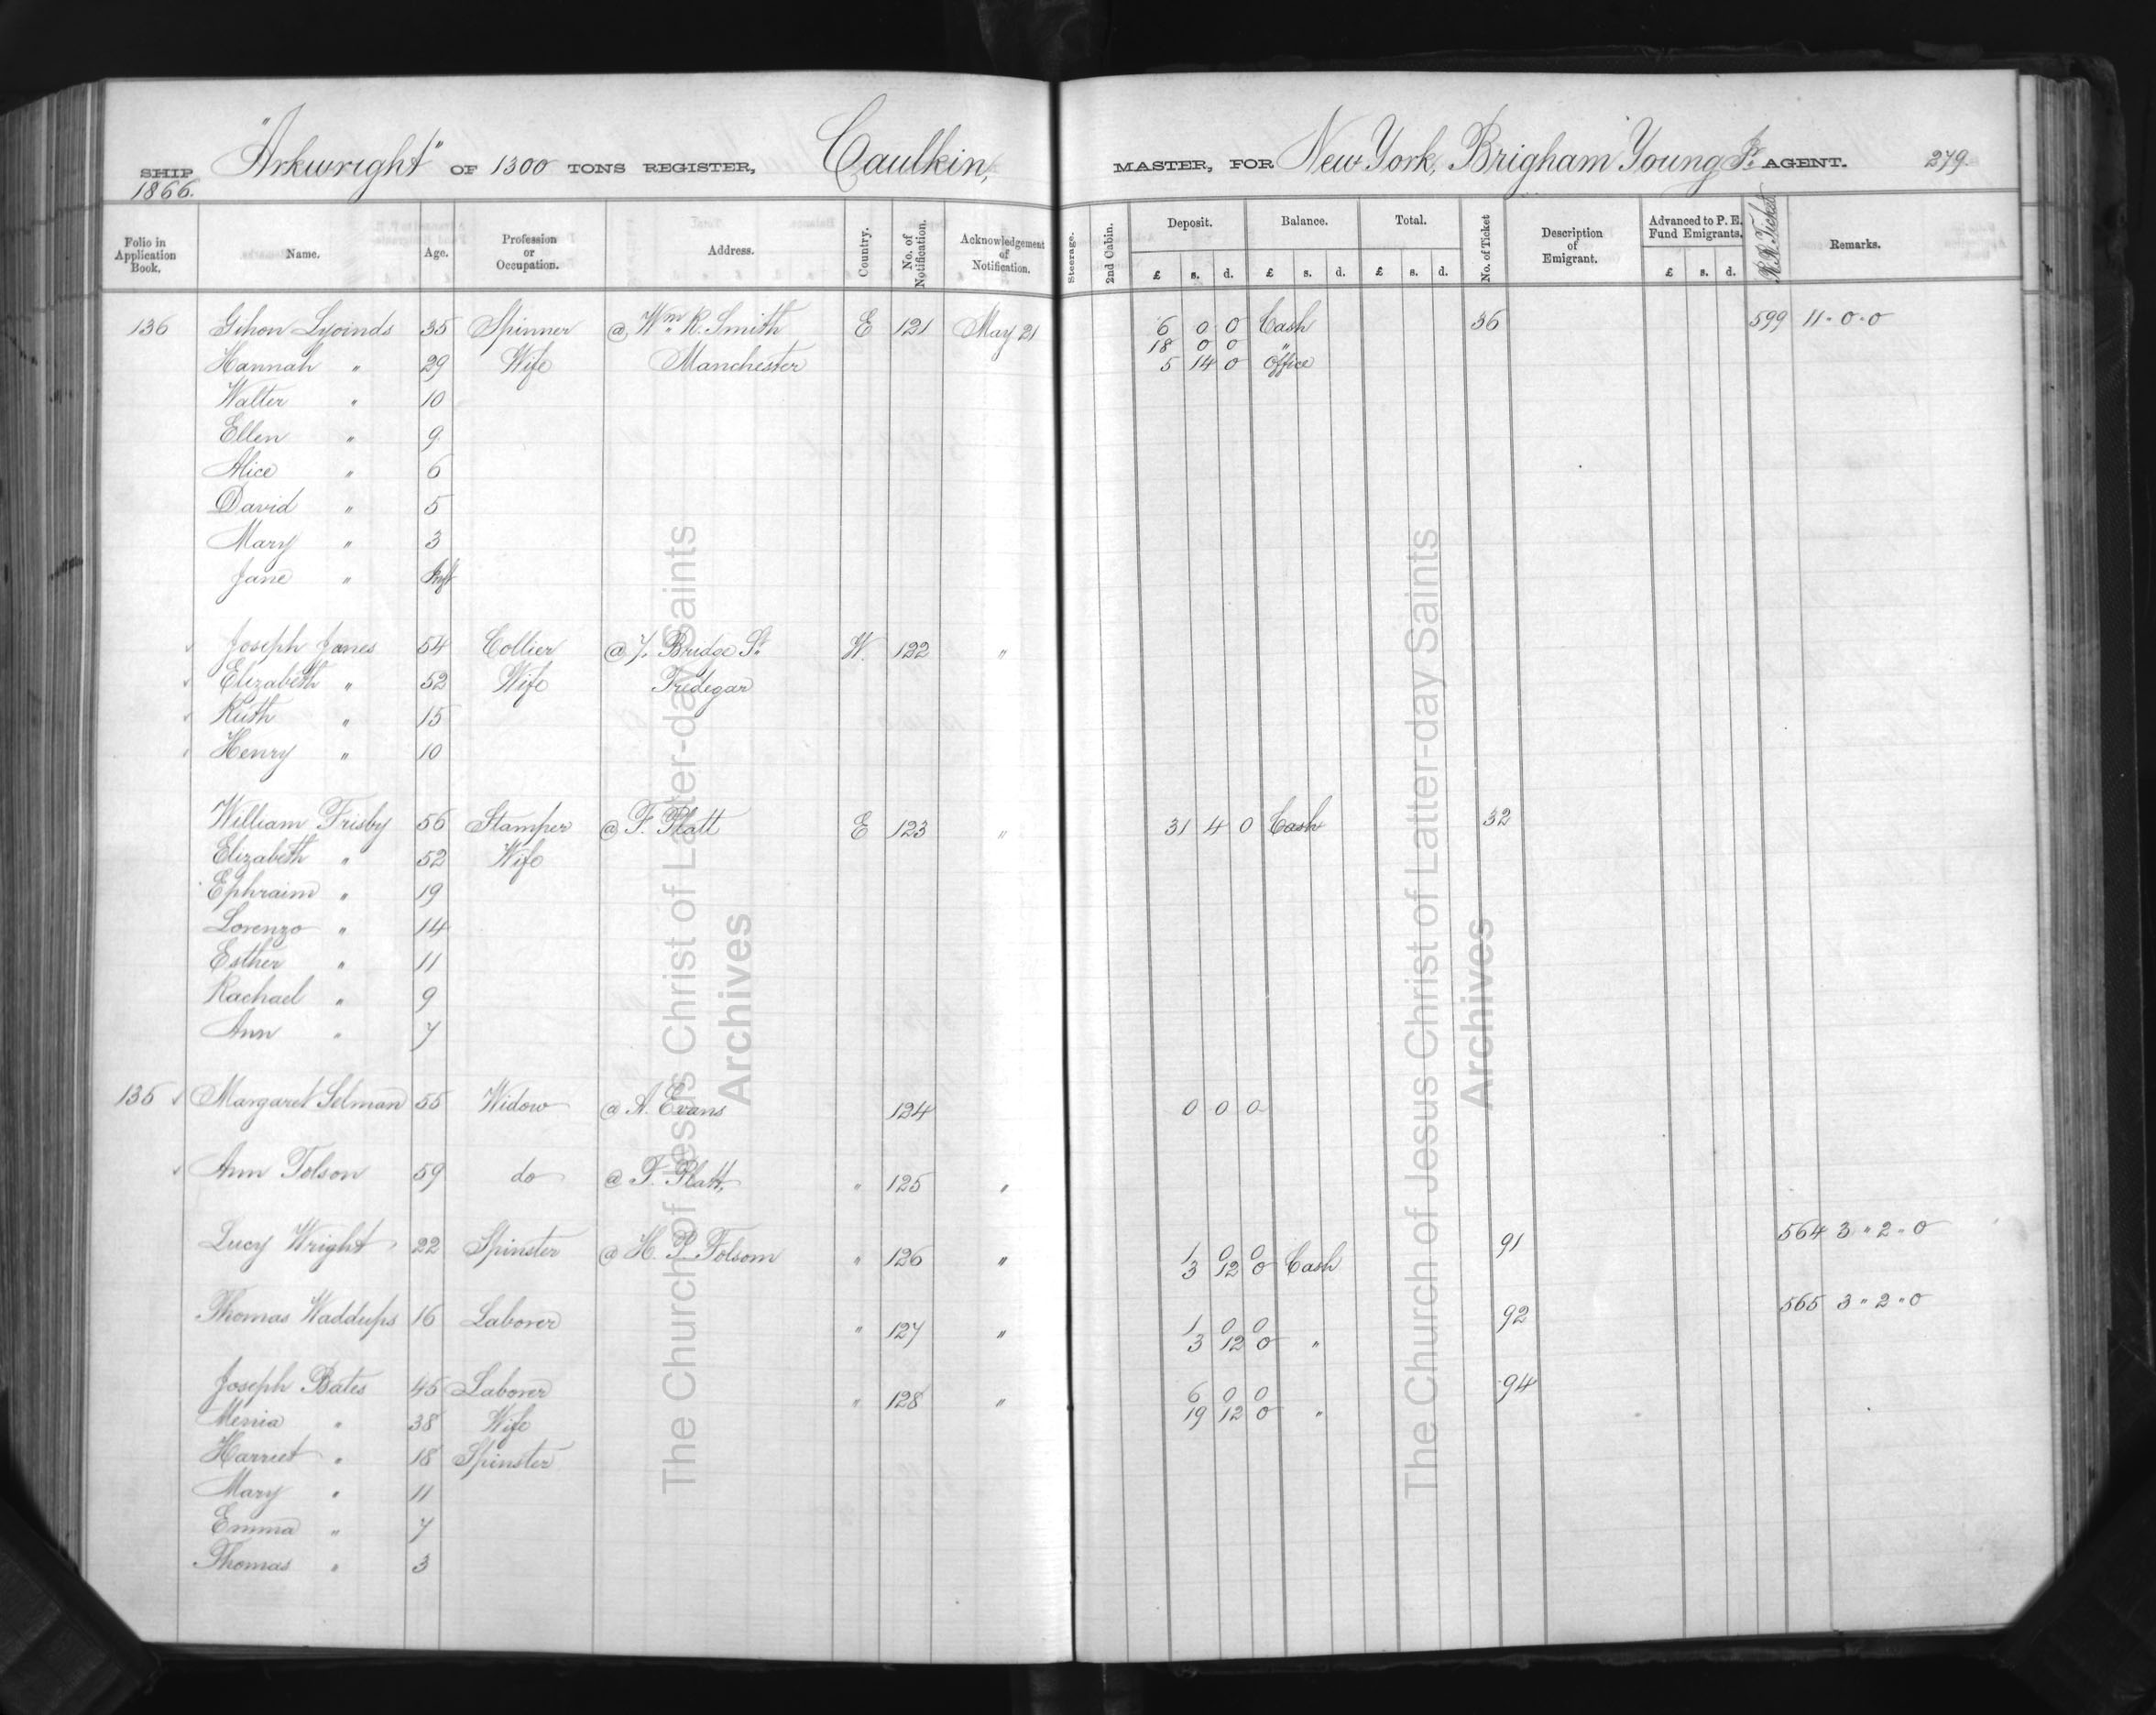 SHIP "Arkwright" OF 1300 TONS REGISTER, Caulkin, MASTER, FOR New York, Brigham Young Jr. AGENT. 279.
1866.
Folio in Application Book. Name. Age. Profession or Occupation. Address. Country. No. of Notification. Acknowledgement of Notification. Steerage. 2nd Cabin. Deposit. £ s. d. Balance. £ s. d. Total. £ s. d. No. of Ticket Description of Emigrant. Advanced to P. E. Fund Emigrants. £ s. d. R.R. Ticket Remarks.
136 Gihon 35 Spinner @ Wm. R. Smith E 121 May 21 6 0 0 Cash 36 599 11-0-0
18 0 0 "
Hannah " 29 Wife Manchester 5 14 0 Office
Walter " 10
Ellen " 9
Alice " 6
David " 5
Mary " 3
Jane " Inft
Joseph Jones 54 Collier @ 7. Bridge St. W. 122 "
Elizabeth " 52 Wife Tredegar
Ruth " 15
Henry " 10
William Frisby 56 Stamper @ F. Platt E 123 " 31 4 0 Cash 32
Elizabeth " 52 Wife
Ephraim " 19
Lorenzo " 14
Esther " 11
Rachael " 9
Ann " 7
135 Margaret Selman 55 Widow @ A. Evans 124 0 0 0
Ann Tolson 59 do @ F. Platt, " 125 "
Lucy Wright 22 Spinster @ H. P. Folsom " 126 " 1 0 0 91 564 3 " 2 " 0
3 12 0 Cash
Thomas Waddups 16 Laborer " 127 " 1 0 0 92 565 3 " 2 " 0
3 12 0 "
Joseph Bates 45 Laborer " 128 " 6 0 0 94
" 38 Wife 19 12 0 "
Harriet " 18 Spinster
Mary " 11
Emma " 7
Thomas " 3
The Church of Jesus Christ of Latter-day Saints
Archives
The Church of Jesus Christ of Latter-day Saints
Archives